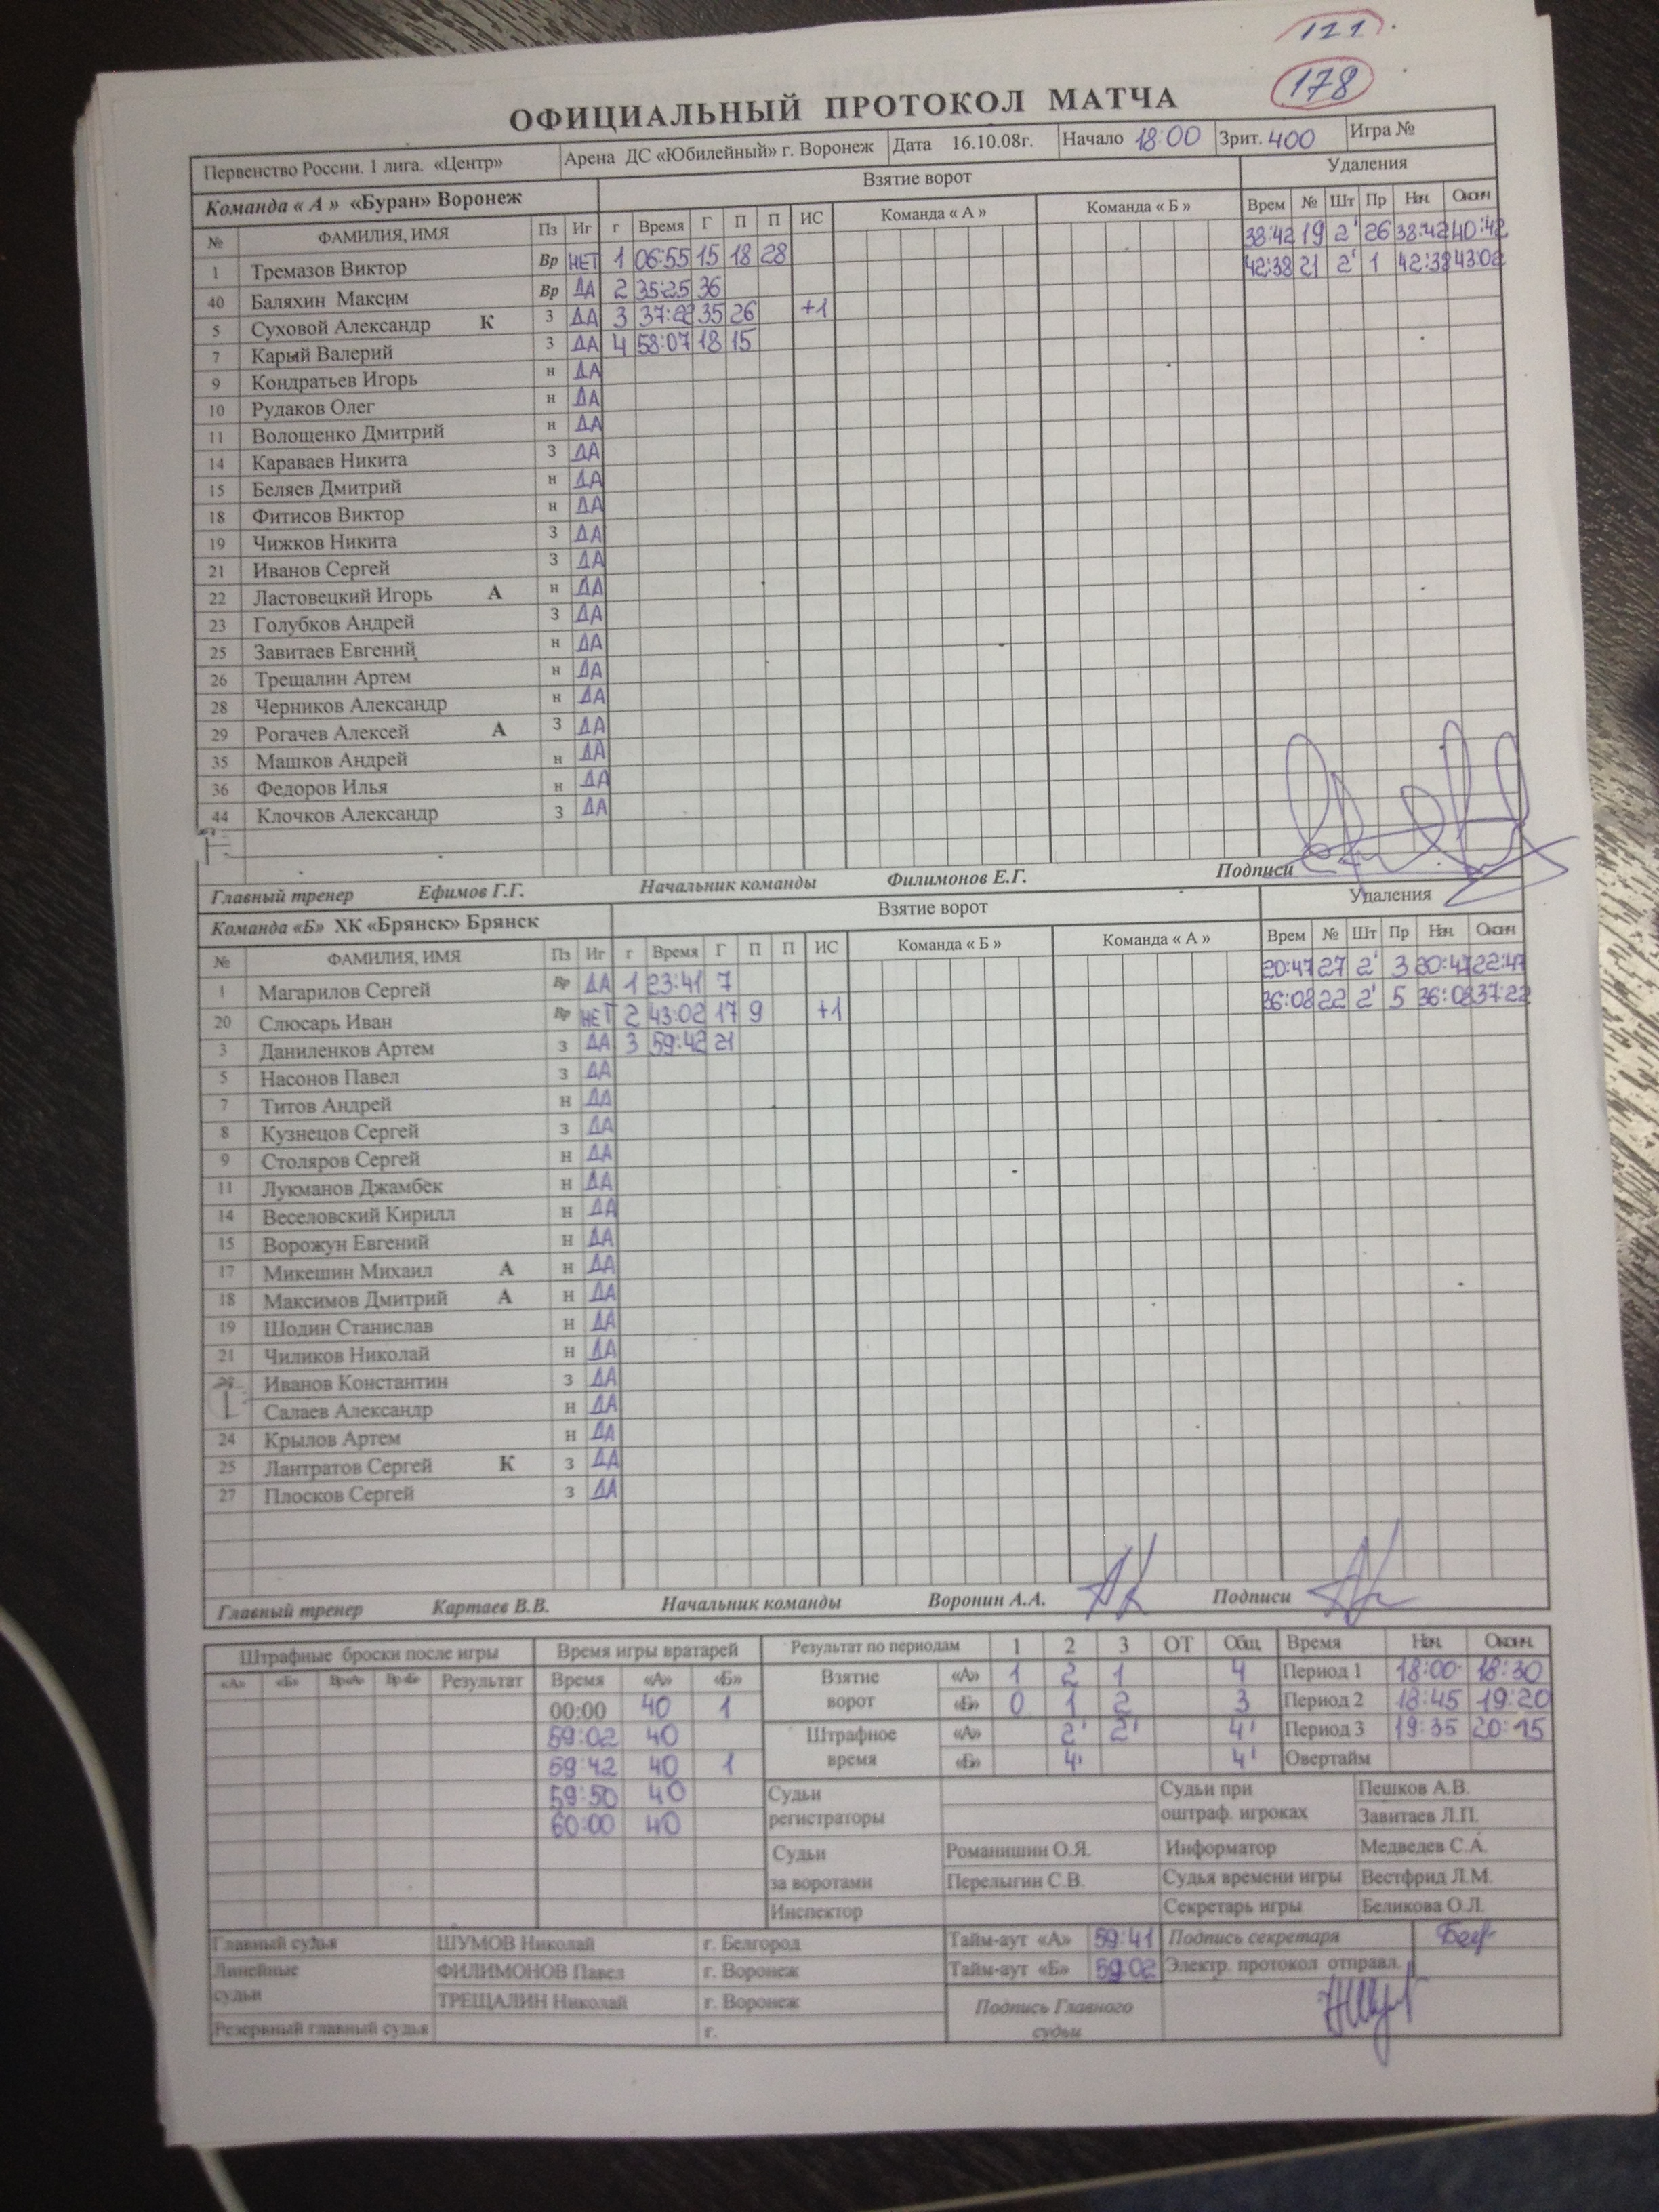 121.
178
ОФИЦИАЛЬНЫЙ ПРОТОКОЛ МАТЧА
Первенство России. 1 лига. «Центр» Арена ДС «Юбилейный» г. Воронеж Дата 16.10.08г. Начало 18:00 Зрит. 400 Игра №
Команда « А » «Буран» Воронеж Взятие ворот Удаления
№ ФАМИЛИЯ, ИМЯ Пз Иг г Время Г П П ИС Команда « А » Команда « Б » Врем № Шт Пр Нач. Оконч
1 Тремазов Виктор Вр НЕТ 1 06:55 15 18 28 38:42 19 2' 26 38:42 40:42
40 Баляхин Максим Вр ДА 2 35:25 36 42:38 21 2' 1 42:38 43:02
5 Суховой Александр К З ДА 3 37:22 35 26 +1
7 Карый Валерий З ДА 4 58:07 18 15
9 Кондратьев Игорь н ДА
10 Рудаков Олег н ДА
11 Волощенко Дмитрий н ДА
14 Караваев Никита З ДА
15 Беляев Дмитрий н ДА
18 Фитисов Виктор н ДА
19 Чижков Никита З ДА
21 Иванов Сергей З ДА
22 Ластовецкий Игорь А н ДА
23 Голубков Андрей З ДА
25 Завитаев Евгений н ДА
26 Трещалин Артем н ДА
28 Черников Александр н ДА
29 Рогачев Алексей А З ДА
35 Машков Андрей н ДА
36 Федоров Илья н ДА
44 Клочков Александр З ДА
Главный тренер Ефимов Г.Г. Начальник команды Филимонов Е.Г. Подписи
Команда «Б» ХК «Брянск» Брянск Взятие ворот Удаления
№ ФАМИЛИЯ, ИМЯ Пз Иг г Время Г П П ИС Команда « Б » Команда « А » Врем № Шт Пр Нач. Оконч
1 Магарилов Сергей Вр ДА 1 23:41 7 20:47 27 2' 3 20:47 22:47
20 Слюсарь Иван Вр НЕТ 2 43:02 17 9 +1 36:08 22 2' 5 36:08 37:22
3 Даниленков Артем З ДА 3 59:42 21
5 Насонов Павел З ДА
7 Титов Андрей Н ДА
8 Кузнецов Сергей З ДА
9 Столяров Сергей Н ДА
11 Лукманов Джамбек Н ДА
14 Веселовский Кирилл Н ДА
15 Ворожун Евгений Н ДА
17 Микешин Михаил А Н ДА
18 Максимов Дмитрий А Н ДА
19 Шодин Станислав Н ДА
21 Чиликов Николай Н ДА
Иванов Константин З ДА
Салаев Александр Н ДА
24 Крылов Артем Н ДА
25 Лантратов Сергей К З ДА
27 Плосков Сергей З ДА
Главный тренер Картаев В.В. Начальник команды Воронин А.А. Подписи
Штрафные броски после игры Время игры вратарей Результат по периодам 1 2 3 ОТ Общ Время Нач. Оконч.
«А» «Б» Вр«А» Вр«Б» Результат Время «А» «Б» Взятие ворот «А» 1 2 1 4 Период 1 18:00 18:30
00:00 40 1 «Б» 0 1 2 3 Период 2 18:45 19:20
59:02 40 Штрафное время «А» 2' 2' 4' Период 3 19:35 20:15
59:42 40 1 «Б» 4' 4' Овертайм
59:50 40 Судьи регистраторы Судьи при оштраф. игроках Пешков А.В.
60:00 40 Завитаев Л.П.
Судьи за воротами Романишин О.Я. Информатор Медведев С.А.
Перелыгин С.В. Судья времени игры Вестфрид Л.М.
Инспектор Секретарь игры Беликова О.Л.
Главный судья ШУМОВ Николай г. Белгород Тайм-аут «А» 59:41 Подпись секретаря
Линейные судьи ФИЛИМОНОВ Павел г. Воронеж Тайм-аут «Б» 59:02 Электр. протокол отправл.
ТРЕЩАЛИН Николай г. Воронеж Подпись Главного судьи
Резервный главный судья г.